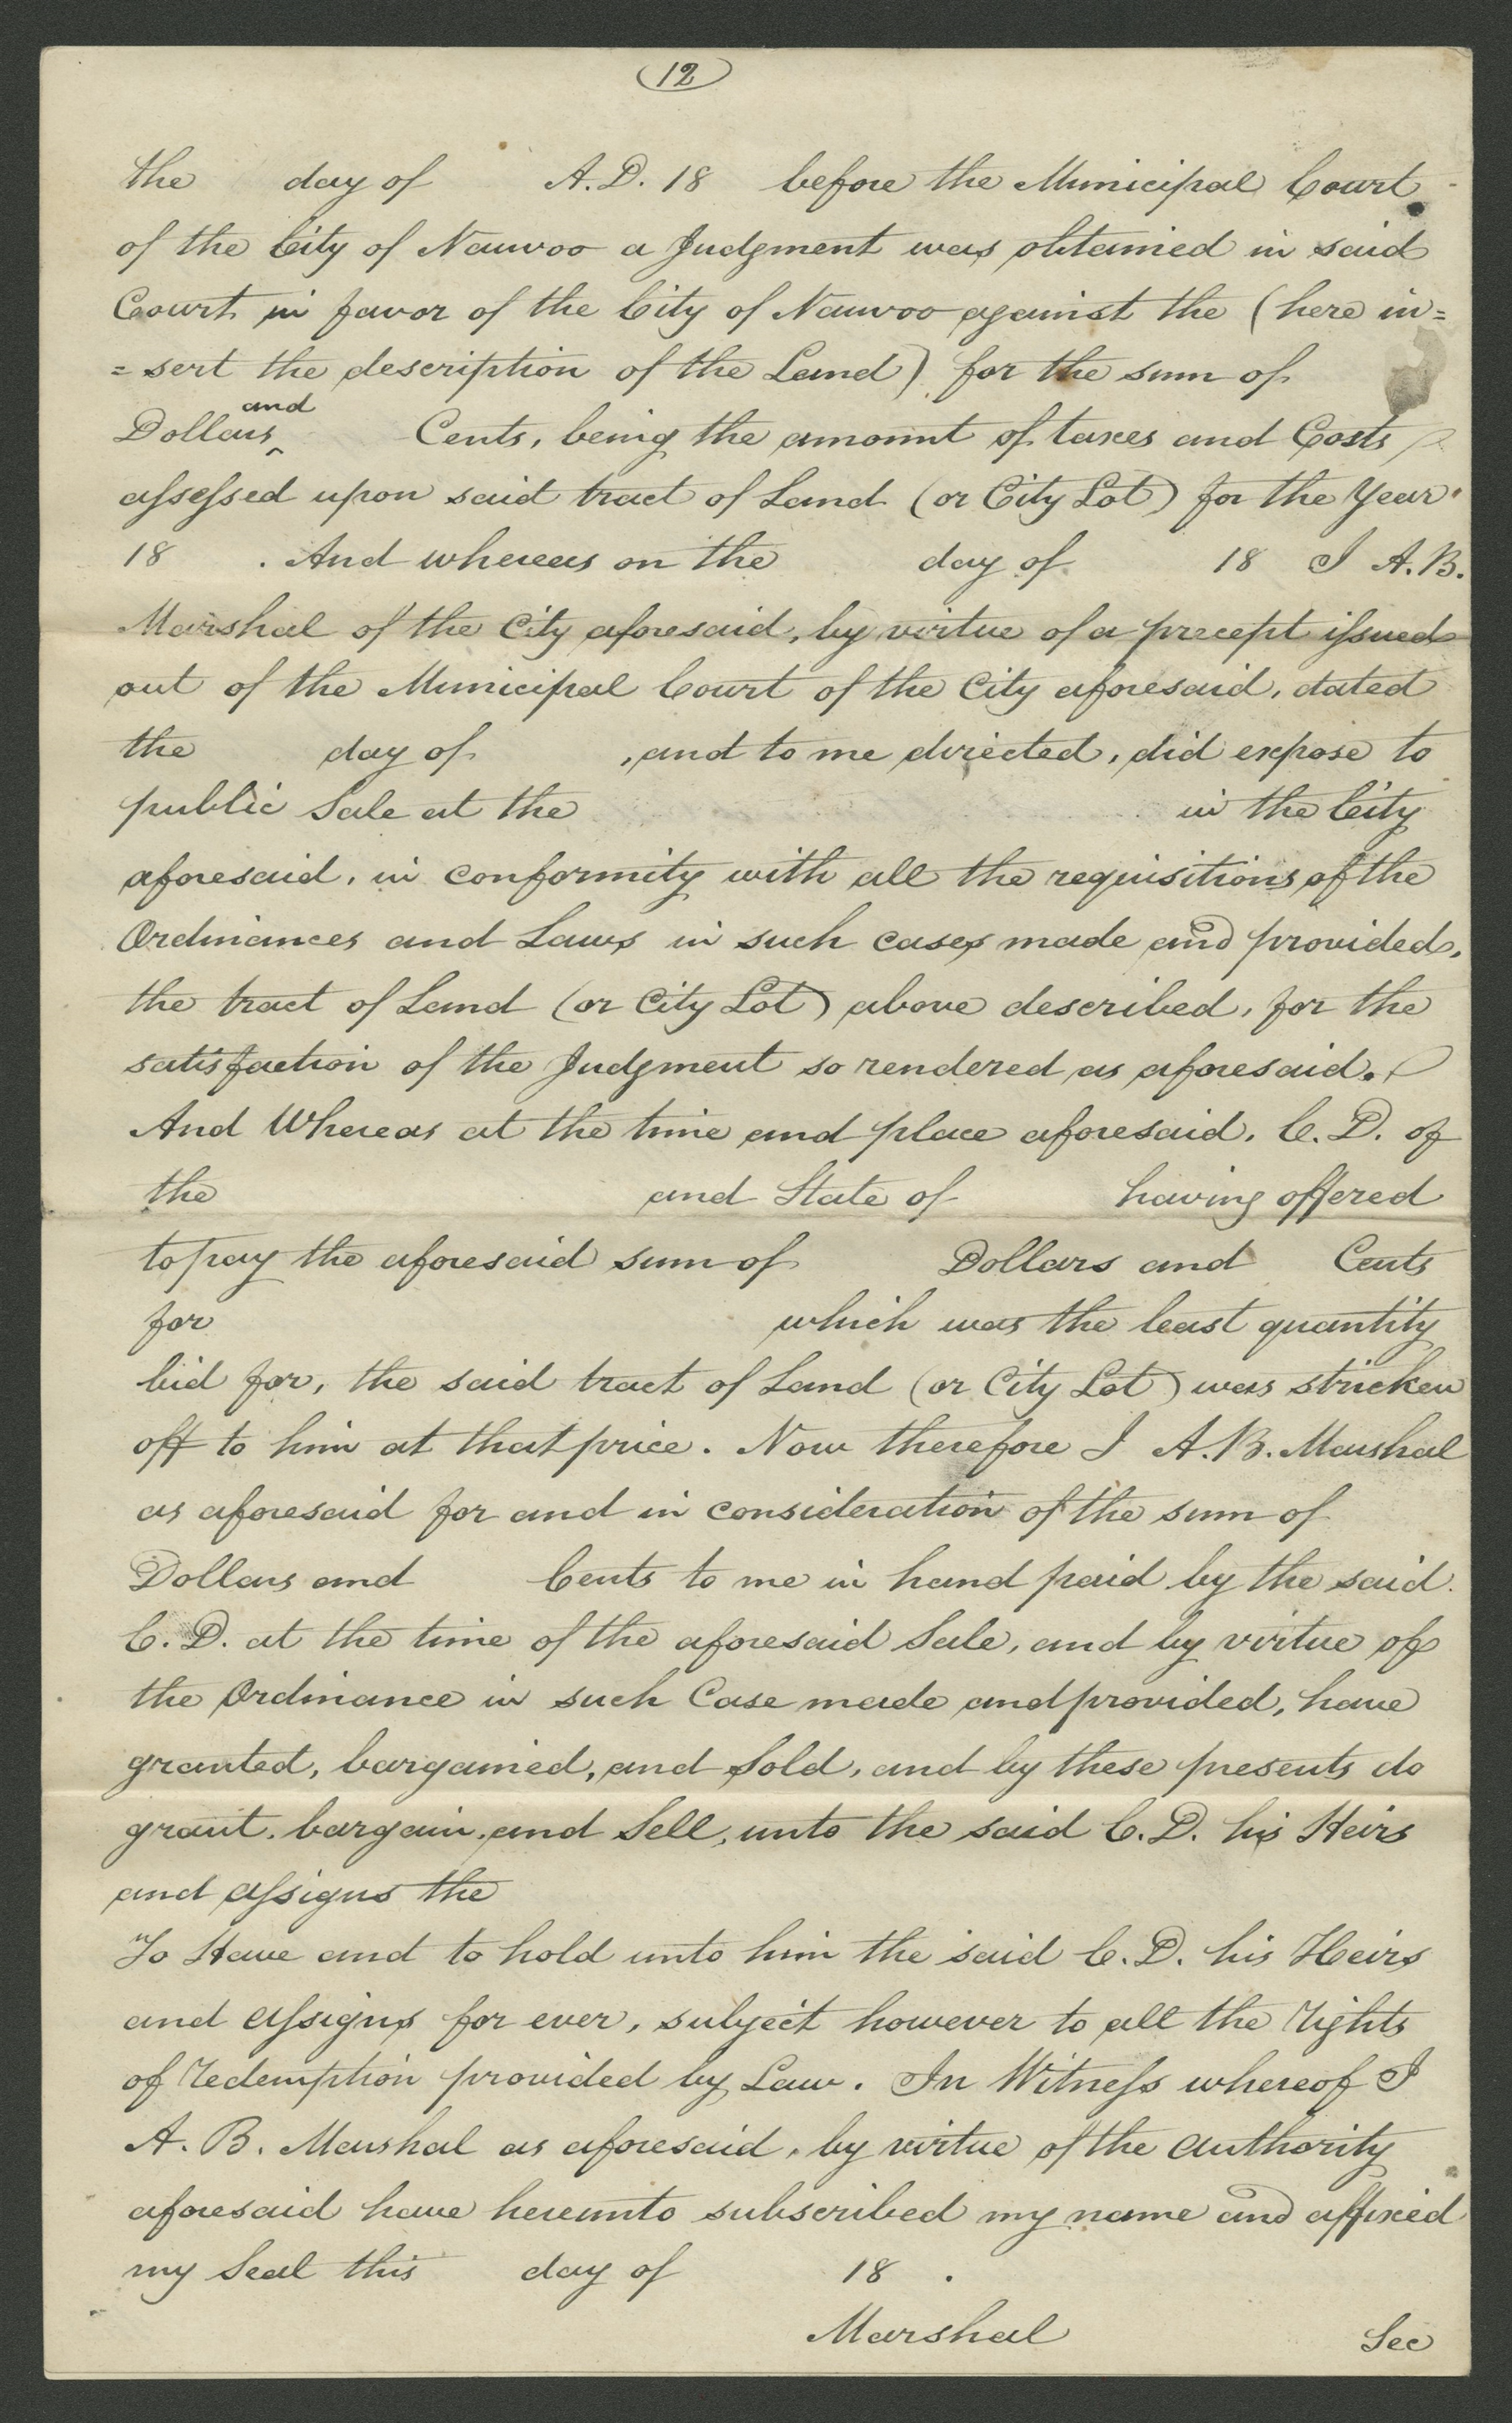 12
the day of A.D. 18 before the Municipal Court
of the City of Nauvoo a Judgment was obtained in said
Court in favor of the City of Nauvoo against the (here in=
=sert the description of the Land) for the sum of
and
Dollars‸ Cents, being the amount of taxes and Costs
assessed upon said tract of Land (or City Lot) for the Year
18 . And whereas on the day of 18 I A.B.
Marshal of the City aforesaid, by virtue of a precept issued
out of the Municipal Court of the City aforesaid, dated
the day of , and to me directed, did expose to
public Sale at the in the City
aforesaid, in conformity with all the requisitions of the
Ordinances and Laws in such cases made and provided,
the tract of Land (or City Lot) above described, for the
satisfaction of the Judgment so rendered as aforesaid.
And Whereas at the time and place aforesaid, C. D. of
the and State of having offered
to pay the aforesaid sum of Dollars and Cents
for which was the least quantity
bid for, the said tract of Land (or City Lot) was stricken
off to him at that price. Now therefore I A.B. Marshal
as aforesaid for and in consideration of the sum of
Dollars and Cents to me in hand paid by the said
C. D. at the time of the aforesaid Sale, and by virtue of
the Ordinance in such Case made and provided, have
granted, bargained, and Sold, and by these presents do
grant, bargain, and Sell, unto the said C. D. his Heirs
and assigns the
To Have and to hold unto him the said C. D. his Heirs
and assigns for ever, subject however to all the rights
of redemption provided by Law. In Witness whereof I
A. B. Marshal as aforesaid, by virtue of the authority
aforesaid have hereunto subscribed my name and affixed
my Seal this day of 18 .
Marshal Sec